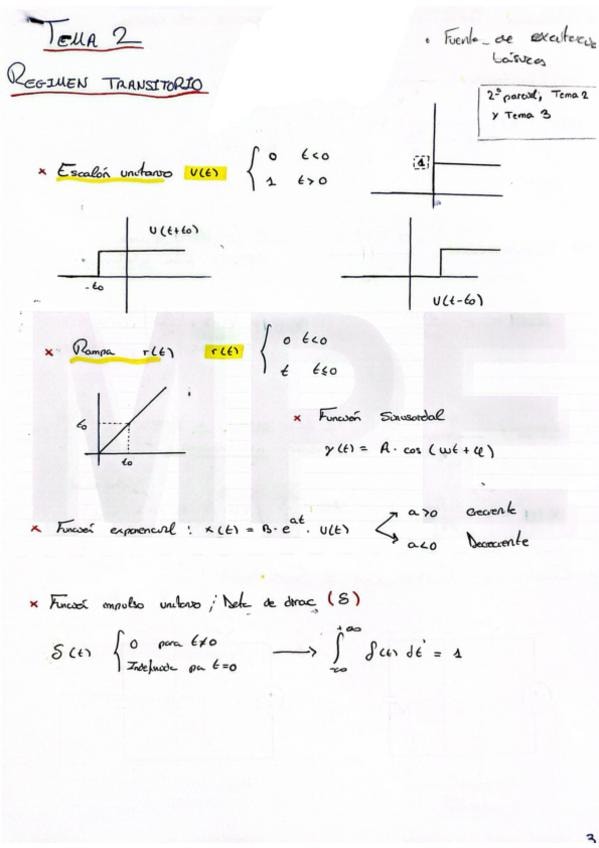 TEMA 2
• Fuente_ de
básicas
REGIMEN TRANSITORIO
2º parcial; Tema 2
y Tema 3
× Escalón unitario U(t) { 0 t<0
1 t>0
1
U(t+to)
-to
U(t-to)
× Rampa r(t) r(t) { 0 t<0
t t≤0
to
to
× Función Sinusoidal
y(t) = A · cos (wt + φ)
× Función exponencial : x(t) = B · e^at · U(t)
a>0 Creciente
a<0 Decreciente
× Función impulso unitario ; Delta de dirac (δ)
δ(t) { 0 para t≠0
Indefinida t=0
⟶ ∫ +∞ -∞ δ(t) dt = 1
MPE
3